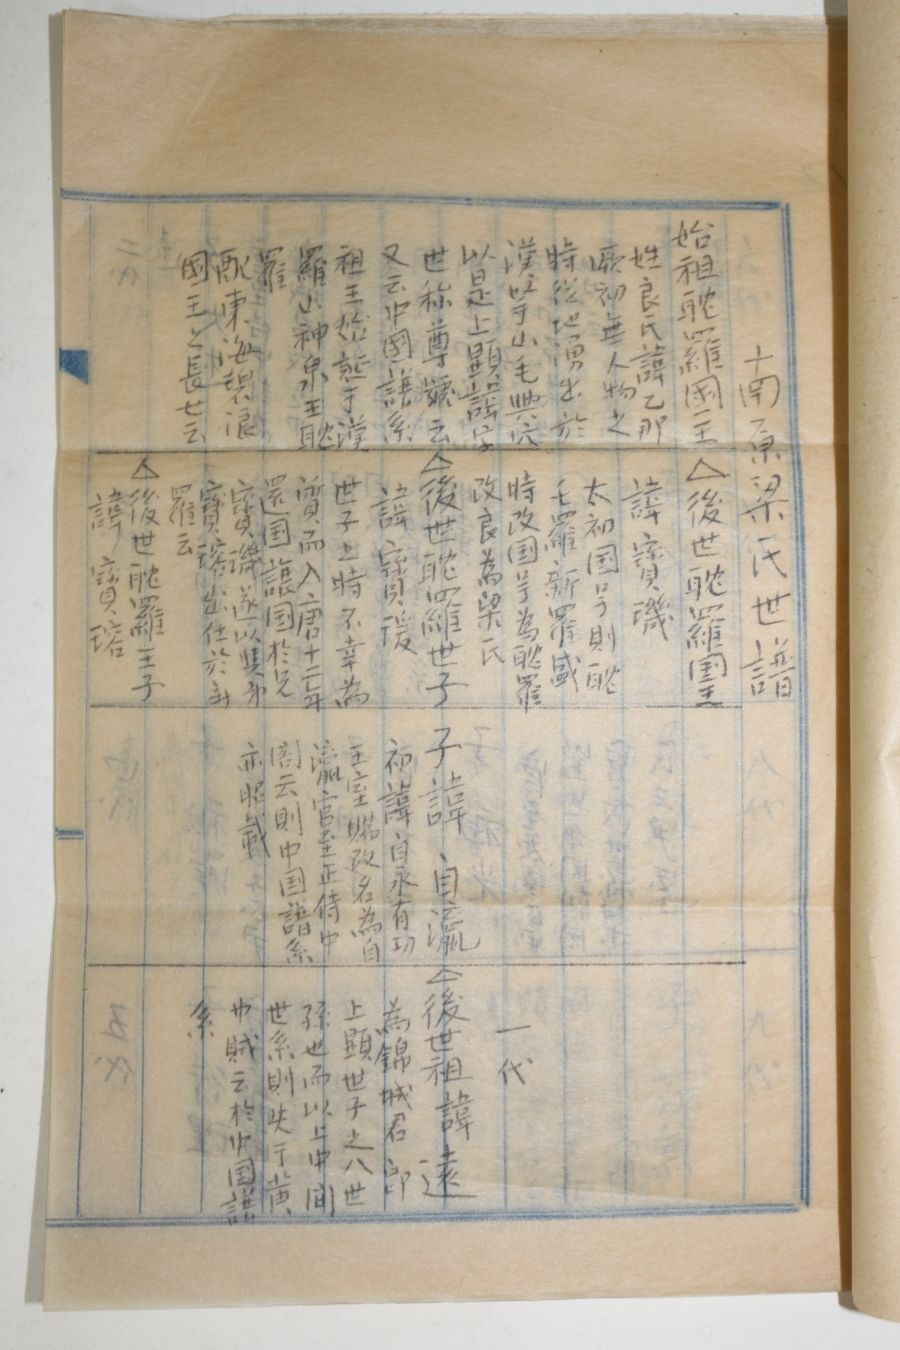 南原梁氏世譜
始祖耽羅國主
姓良氏諱乙那
厥初無人物之
時從地湧出於
漢拏山毛興穴
以是上顯諱字
世称尊號云
又云中國譜系
祖王始蹔于漢
羅山神泉王耽
羅
配東海碧浪
國王之長女云
△後世耽羅國主
諱寶璣
太初国号則耽
乇羅新羅盛
時改国号為耽羅
改良為梁氏
△後世耽羅世子
諱寶瑗
世子之時不幸為
質而入唐十二年
還国讓国於兄
寶璣遂以其弟
寶瑢出仕於新
羅云
△後世耽羅王子
諱寶瑢
子諱自瀛
初諱自永有功
王室賜改名為自
瀛官至正侍中
閣云則中国譜系
亦昭載
一代
△後世祖諱遠
為錦城君郎
上顯世子之八世
孫也而以上中间
世系則失于黄
巾賊云於中国譜
系